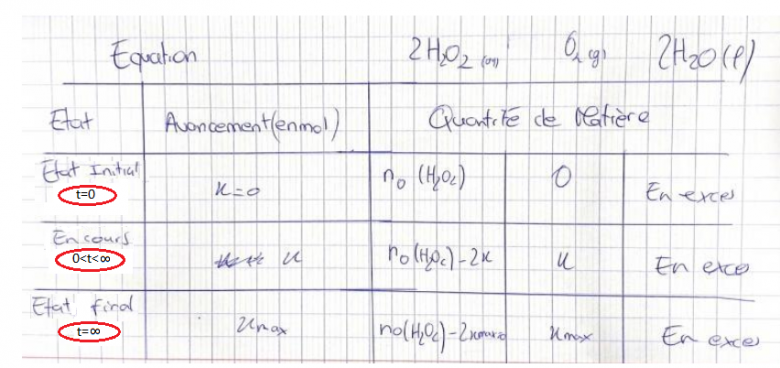 Equation 2H₂O₂ (aq) O₂ (g) 2H₂O (l)
Etat Avancement (en mol) Quantité de Matière
Etat Initial
t=0 x=0 n₀ (H₂O₂) 0 En exces
En cours
0<t<∞ x n₀(H₂O₂)-2x x En exces
Etat final
t=∞ xmax n₀(H₂O₂)-2xmax=0 xmax En exces